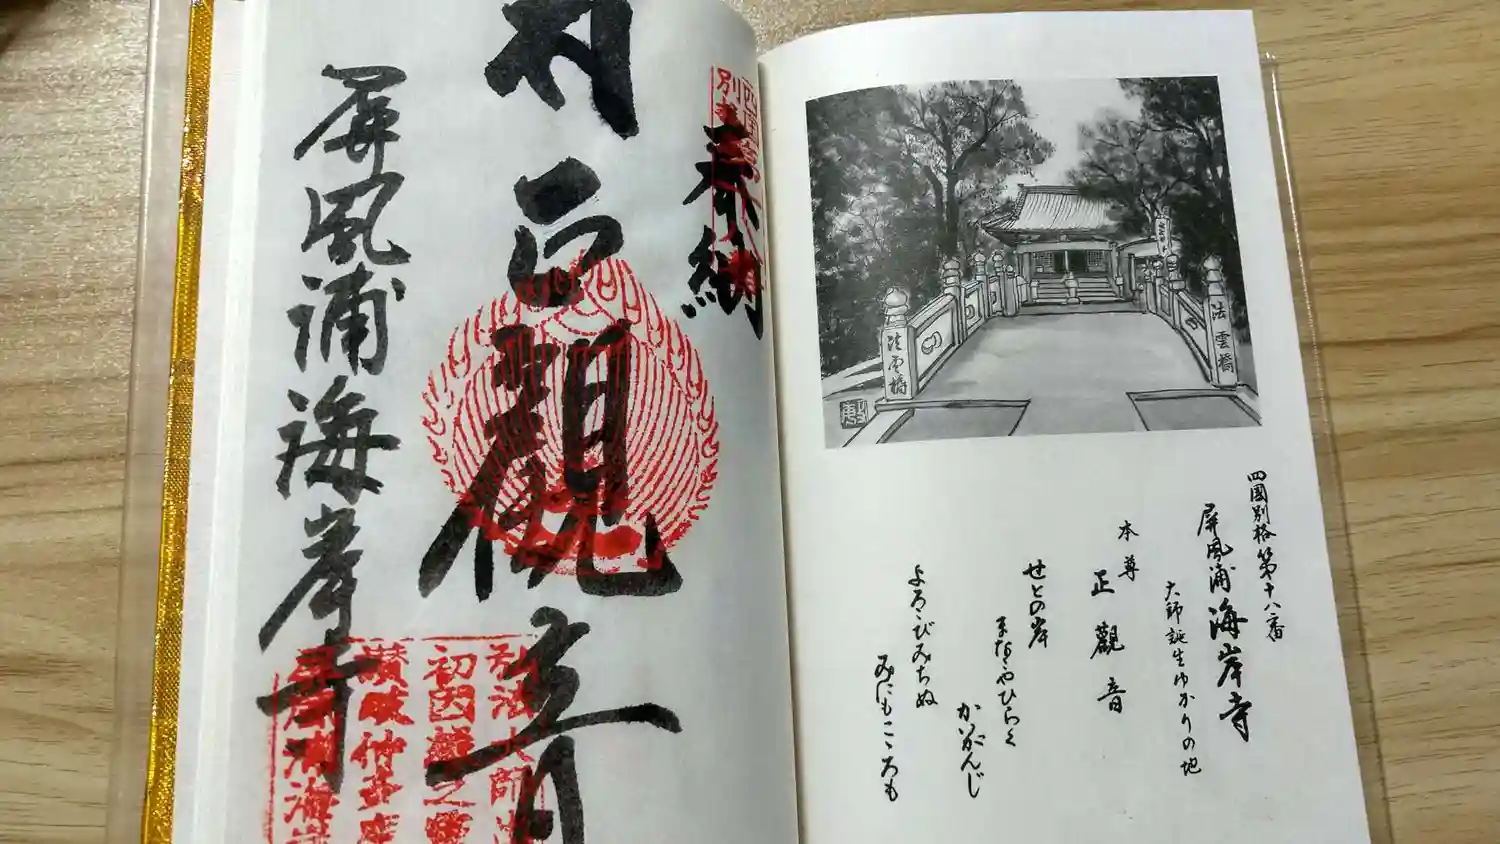 奉納
正観音
屏風浦海岸寺
四国
別格
弘法大師
初因縁之霊
讃岐仲多度
屏風浦海岸
法雲橋
法雲橋
四國別格第十八番
屏風浦 海岸寺
大師誕生ゆかりの地
本尊 正觀音
せとの岸
まなこやひらく
かいがんじ
よろこびみちぬ
みにもこゝろも